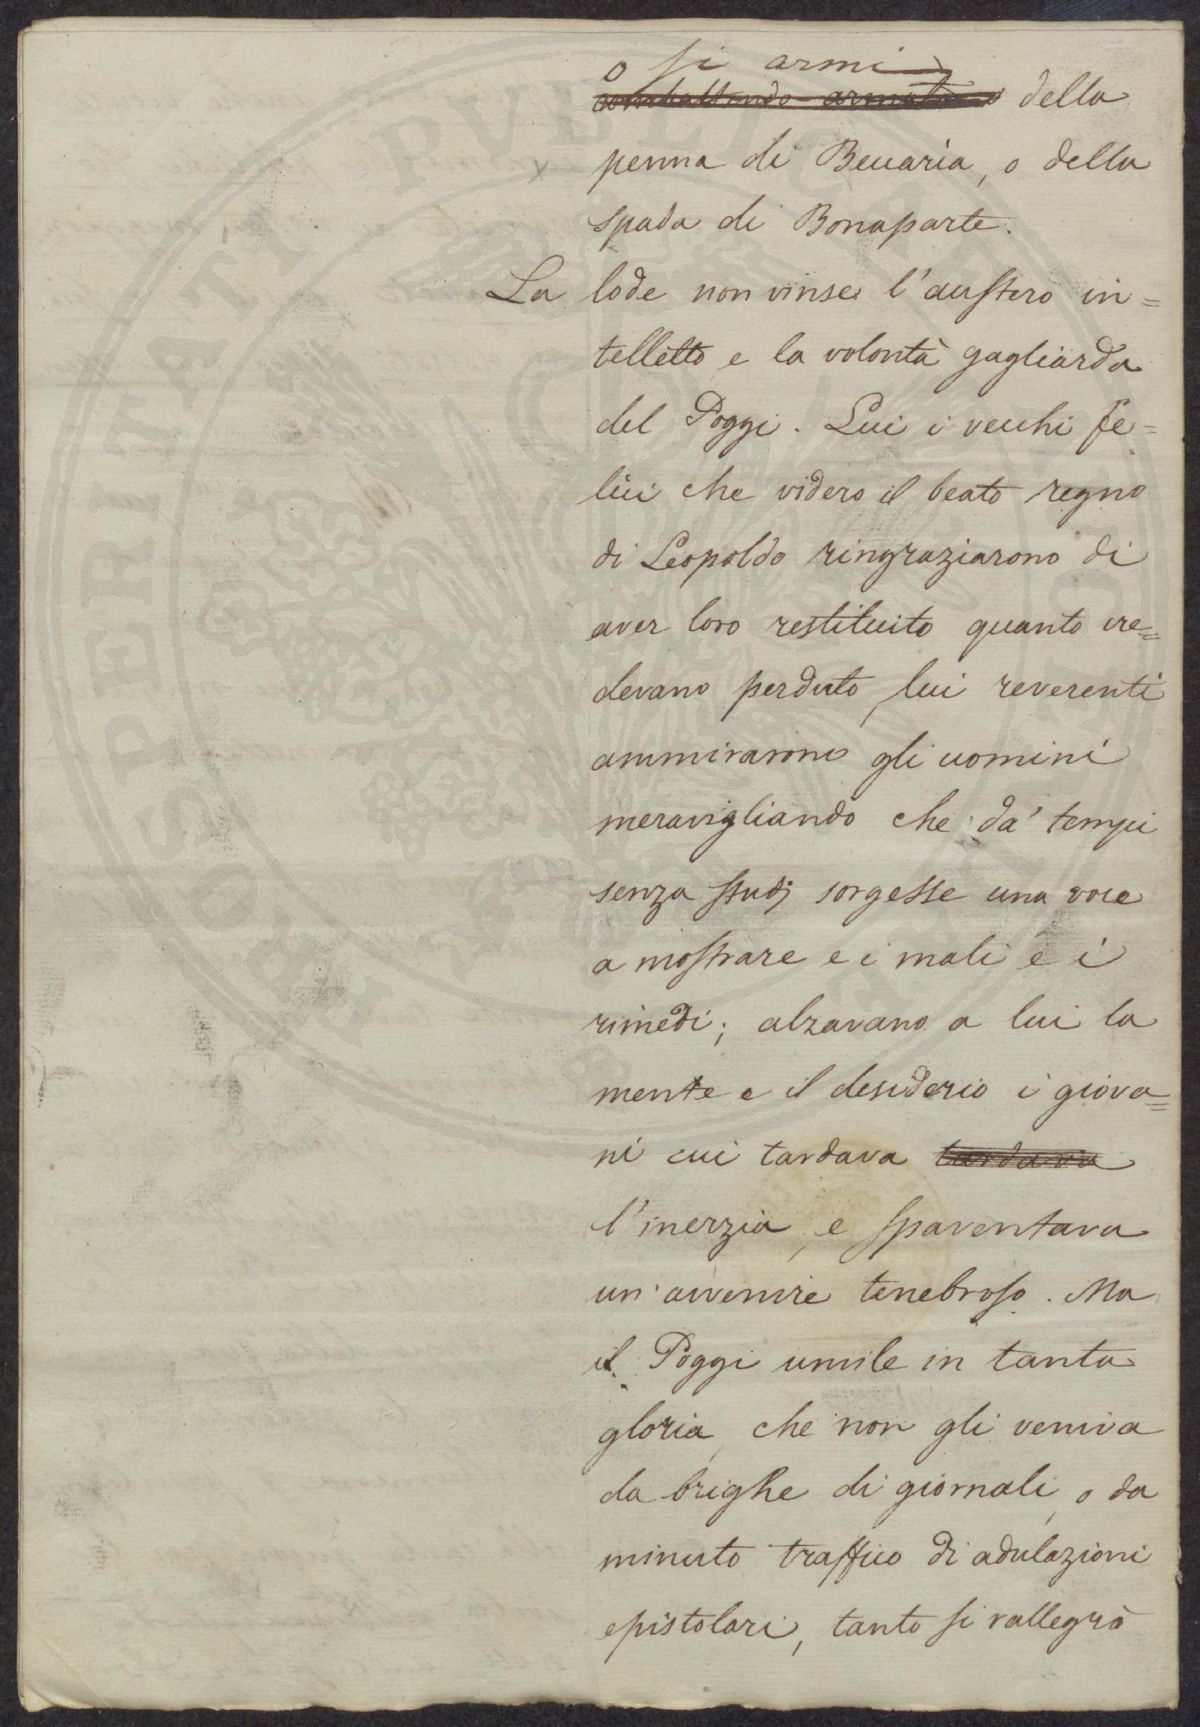 o si armi
~~combattendo armata o~~ della
penna di Beccaria, o della
spada di Bonaparte.
La lode non vinse l'austero in=
telletto e la volontà gagliarda
del Poggi. Lui i vecchi fe=
lici che videro il beato regno
di Leopoldo ringraziarono di
aver loro restituito quanto cre=
devano perduto, lui reverenti
ammirarono gli uomini
meravigliando che da' tempi
senza studj sorgesse una voce
a mostrare e i mali e i
rimedi; alzavano a lui la
mente e il desiderio i giova=
ni cui tardava ~~tardava~~
l'inerzia, e spaventava
un'avvenire tenebroso. Ma
il Poggi umile in tanta
gloria, che non gli veniva
da brighe di giornali, o da
minuto traffico di adulazioni
epistolari, tanto si rallegrò